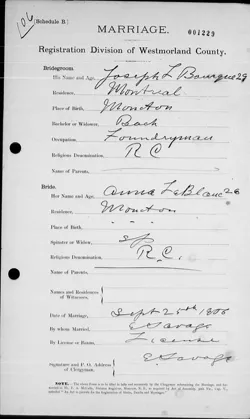 106
(Schedule B.)
MARRIAGE.
001229
Registration Division of Westmorland County.
Bridegroom
His Name and Age, Joseph L Bourque 29
Residence, Montreal
Place of Birth, Moncton
Bachelor or Widower, Bach
Occupation, Foundryman
Religious Denomination, R C
Names of Parents,
Bride.
Her Name and Age, Anna LeBlanc 26
Residence, Moncton
Place of Birth, " "
Spinster or Widow, Sp
Religious Denomination, R.C.
Names of Parents,
Names and Residences of Witnesses,
Date of Marriage, Sept 25th
By whom Married, E Savage
By License or Banns, License
Signature and P. O. Address of Clergyman. E Savage